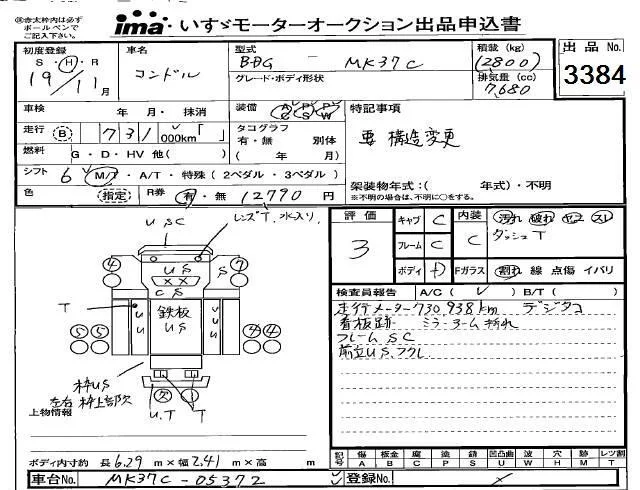 ※赤太枠内は必ず
ボールペンで
ご記入下さい。
ima いすゞモーターオークション出品申込書
初度登録
S・H・R
19/11月
車名
コンドル
型式
BDG - MK37C
グレード・ボディ形状
積載 (kg)
(2800)
排気量 (cc)
7,680
出品 No.
3384
車検 年 月・抹消
装備 A/C P/S P/W
特記事項
要 構造変更
走行 B 731 000km「 」
タコグラフ
有・無 別体
( 年 月)
燃料 G・D・HV 他( )
シフト 6 M/T・A/T・特殊(2ペダル・3ペダル)
架装物年式:( 年式)・不明
※不明の場合は、不明に○をする。
色 指定 R券 有・無 12790 円
USC
レンズT.水入り
評価
3
キャブ C
フレーム C
ボディ D
内装 C
汚れ 破れ ヤニ スレ
ダッシュT
Fガラス 割れ 線 点傷 イバリ
④ US S ⑦
XX
CS
T
UU
鉄板
US
UUU
⑤⑤ ④④
枠US
左右 枠上部欠
欠
U.T T
上物情報
検査員報告 A/C( ) B/T( )
走行メーター730,938km デジタコ
看板跡 ミラーアーム折れ
フレームSC
前立US.フクレ
ボディ内寸約 長6.29m×幅2.41m×高 m
記号 傷A 板金B 腐C 塗P 錆S 凹凸曲U 波W 穴H 跡M レツ割T
車台No. MK37C-05372
登録No.